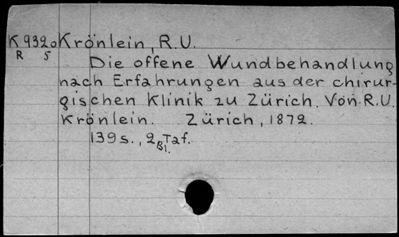 K 9320 Krönlein, R.U.
R 5
Die offene Wundbehandlung
nach Erfahrungen aus der chirur-
gischen Klinik zu Zürich. Von R.U.
Krönlein. Zürich, 1872.
139 s., 2 Bl. Taf.